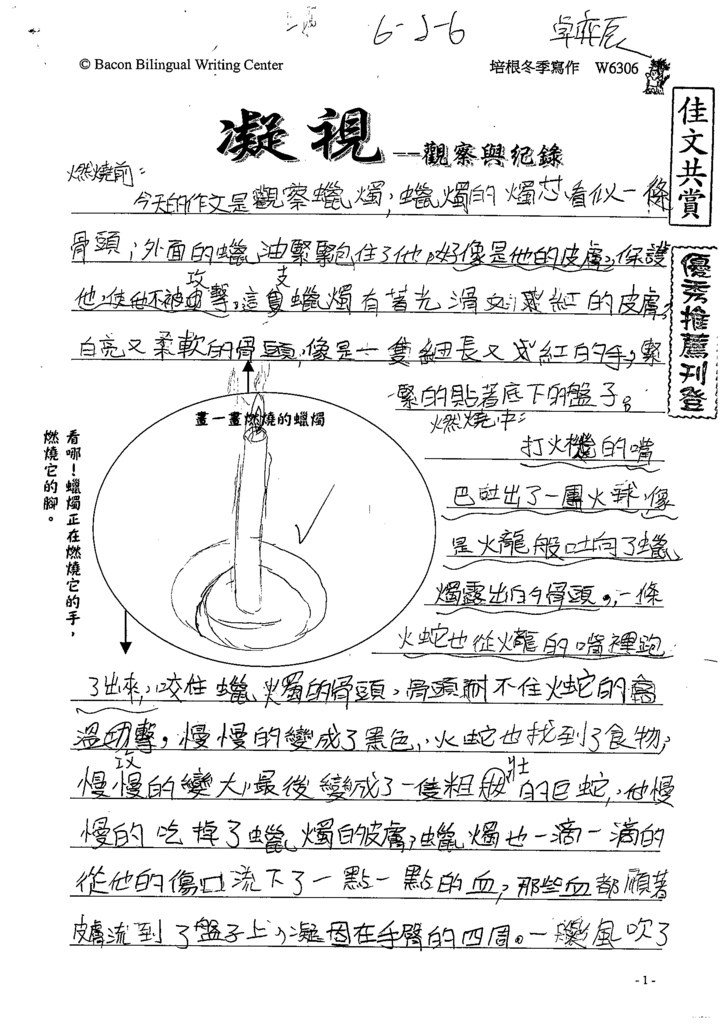 6-2-6 卓弈辰
© Bacon Bilingual Writing Center 培根冬季寫作 W6306
佳文共賞
優秀推薦刊登
凝視 --觀察與紀錄
燃燒前:
今天的作文是觀察蠟燭,蠟燭的燭芯看似一條
骨頭,外面的蠟油緊緊包住了他,好像是他的皮膚,保護
他,使他不被攻擊,這支蠟燭有著光滑又粉紅的皮膚,
白亮又柔軟的骨頭,像是一隻細長又粉紅的手,緊
緊的貼著底下的盤子。
燃燒中:
畫一畫燃燒的蠟燭
看哪!蠟燭正在燃燒它的手,
燃燒它的腳。
打火機的嘴
巴吐出了一團火球,像
是火龍般吐向了蠟
燭露出的骨頭,一條
火蛇也從火龍的嘴裡跑
了出來,咬住蠟燭的骨頭,骨頭耐不住火蛇的高
溫攻擊,慢慢的變成了黑色,火蛇也找到了食物,
慢慢的變大,最後變成了一隻粗壯的巨蛇,他慢
慢的吃掉了蠟燭的皮膚,蠟燭也一滴一滴的
從他的傷口流下了一點一點的血,那些血都順著
皮膚流到了盤子上,凝固在手臂的四周。一陣風吹了
- 1 -